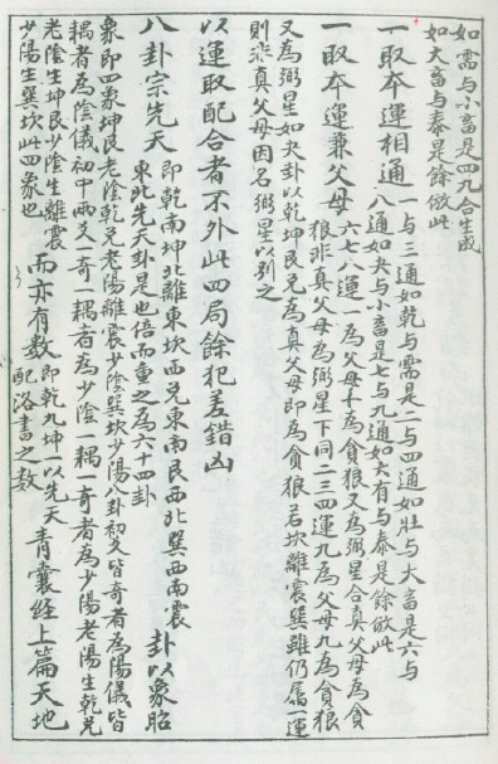 如需与小畜是四九合生成
如大畜与泰是餘倣此
一取本運相通 一与三通如乾与需是二与四通如壯与大畜是六与
八通如夬与小畜是七与九通如大有与泰是餘倣此
一取本運兼父母 六七八運一為父母十為貪狼又為弼星合真父母為貪
狼非真父母為弼星下同二三四運九為父母九為貪狼
又為弼星如夬卦以乾坤艮兑為真父母即為貪狼若坎離震巽雖仍屬一運
則非真父母因名弼星以别之
以運取配合者不外此四局餘犯差錯凶
八卦宗先天 即乾南坤北離東坎西兑東南艮西北巽西南震
東北先天卦是也倍而重之為六十四卦 卦以象昭
象即四象坤艮老陰乾兑老陽離震少陰巽坎少陽八卦初爻皆奇者為陽儀皆
耦者為陰儀初中兩爻一奇一耦者為少陰一耦一奇者為少陽老陽生乾兑
老陰生坤艮少陰生離震
少陽生巽坎此四象也 而亦有数 即乾九坤一以先天
配洛書之数 青囊经上篇天地